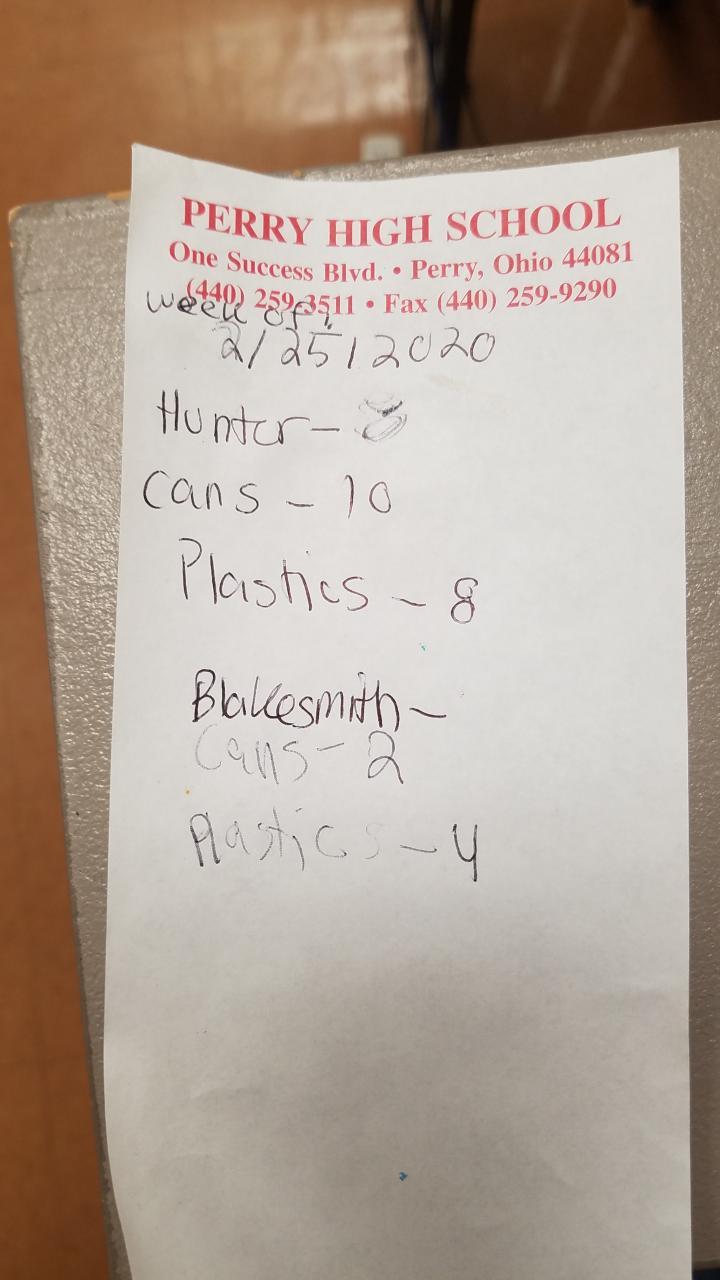 PERRY HIGH SCHOOL
One Success Blvd. • Perry, Ohio 44081
(440) 259-3511 • Fax (440) 259-9290
week of:
2/25/2020
Hunter-
Cans - 10
Plastics - 8
Blakesmith-
Cans- 2
Plastics - 4